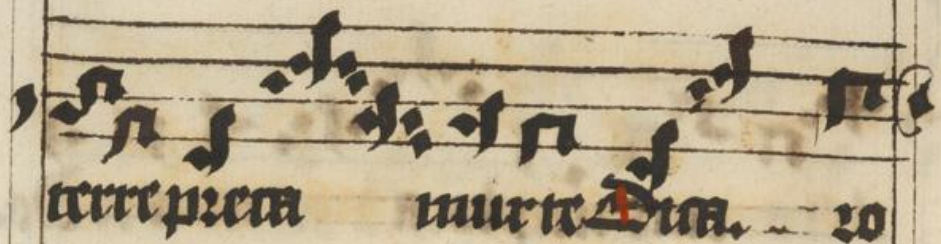 terre preca murte Dica. ro